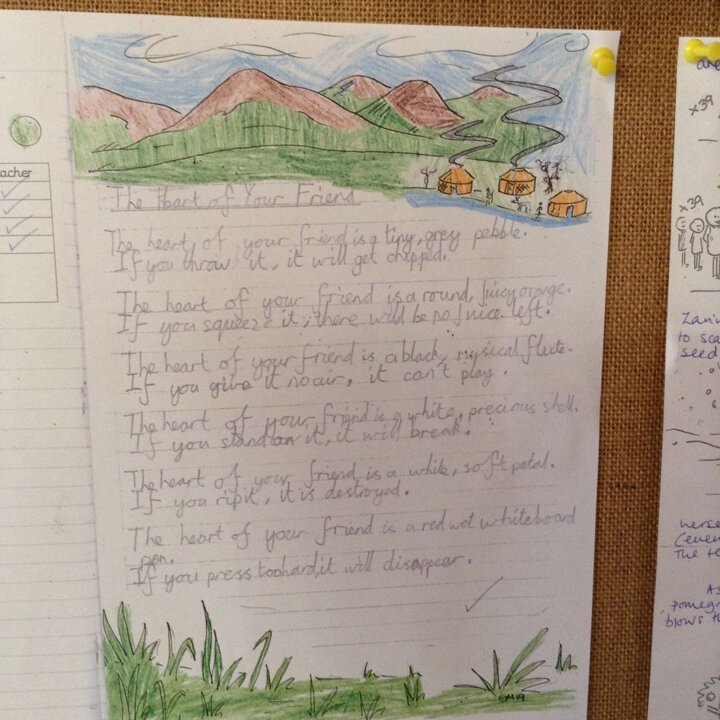 acher
The Heart of Your Friend
The heart of your friend is a tiny, grey pebble.
If you throw it, it will get chipped.
The heart of your friend is a round, juicy orange.
If you squeeze it, there will be no juice left.
The heart of your friend is a black, musical flute.
If you give it no air, it can't play.
The heart of your friend is a white, precious shell.
If you stand on it, it will break.
The heart of your friend is a white, soft petal.
If you rip it, it is destroyed.
The heart of your friend is a red wot whiteboard
pen.
If you press too hard, it will disappear.
are
x39
x39
to sca
seed
The te
As
pomegr
blows th